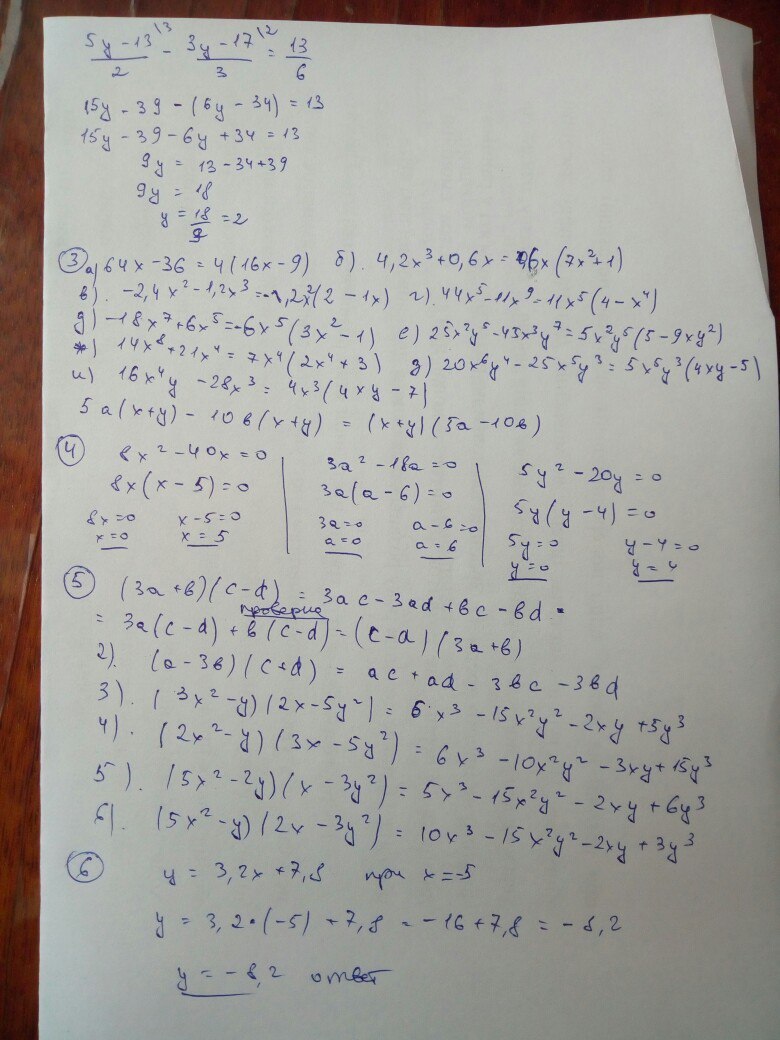 (5y-13)/2 \3 - (3y-17)/3 \2 = 13/6
15y - 39 - (6y - 34) = 13
15y - 39 - 6y + 34 = 13
9y = 13 - 34 + 39
9y = 18
y = 18/9 = 2
③ а) 64x - 36 = 4(16x - 9) б). 4,2x³ + 0,6x = 0,6x(7x² + 1)
в). -2,4x² - 1,2x³ = -1,2x²(2 - 1x) г). 44x⁵ - 11x⁹ = 11x⁵(4 - x⁴)
д) -18x⁷ + 6x⁵ = -6x⁵(3x² - 1) е) 25x²y⁵ - 45x³y⁷ = 5x²y⁵(5 - 9xy²)
ж) 14x⁸ + 21x⁴ = 7x⁴(2x⁴ + 3) д) 20x⁶y⁴ - 25x⁵y³ = 5x⁵y³(4xy - 5)
и) 16x⁴y - 28x³ = 4x³(4xy - 7)
5a(x+y) - 10в(x+y) = (x+y)(5a - 10в)
④ 8x² - 40x = 0 | 3a² - 18a = 0 | 5y² - 20y = 0
8x(x - 5) = 0 | 3a(a - 6) = 0 | 5y(y - 4) = 0
8x = 0 x - 5 = 0 | 3a = 0 a - 6 = 0 | 5y = 0 y - 4 = 0
x = 0 x = 5 | a = 0 a = 6 | y = 0 y = 4
⑤ (3a + в)(c - d) = 3ac - 3ad + вc - вd =
проверка
= 3a(c - d) + в(c - d) = (c - d)(3a + в)
2). (a - 3в)(c + d) = ac + ad - 3вc - 3вd
3). (3x² - y)(2x - 5y²) = 6x³ - 15x²y² - 2xy + 5y³
4). (2x² - y)(3x - 5y²) = 6x³ - 10x²y² - 3xy + 15y³
5). (5x² - 2y)(x - 3y²) = 5x³ - 15x²y² - 2xy + 6y³
6). (5x² - y)(2x - 3y²) = 10x³ - 15x²y² - 2xy + 3y³
⑥ y = 3,2x + 7,8 при x = -5
y = 3,2•(-5) + 7,8 = -16 + 7,8 = -8,2
y = -8,2 ответ